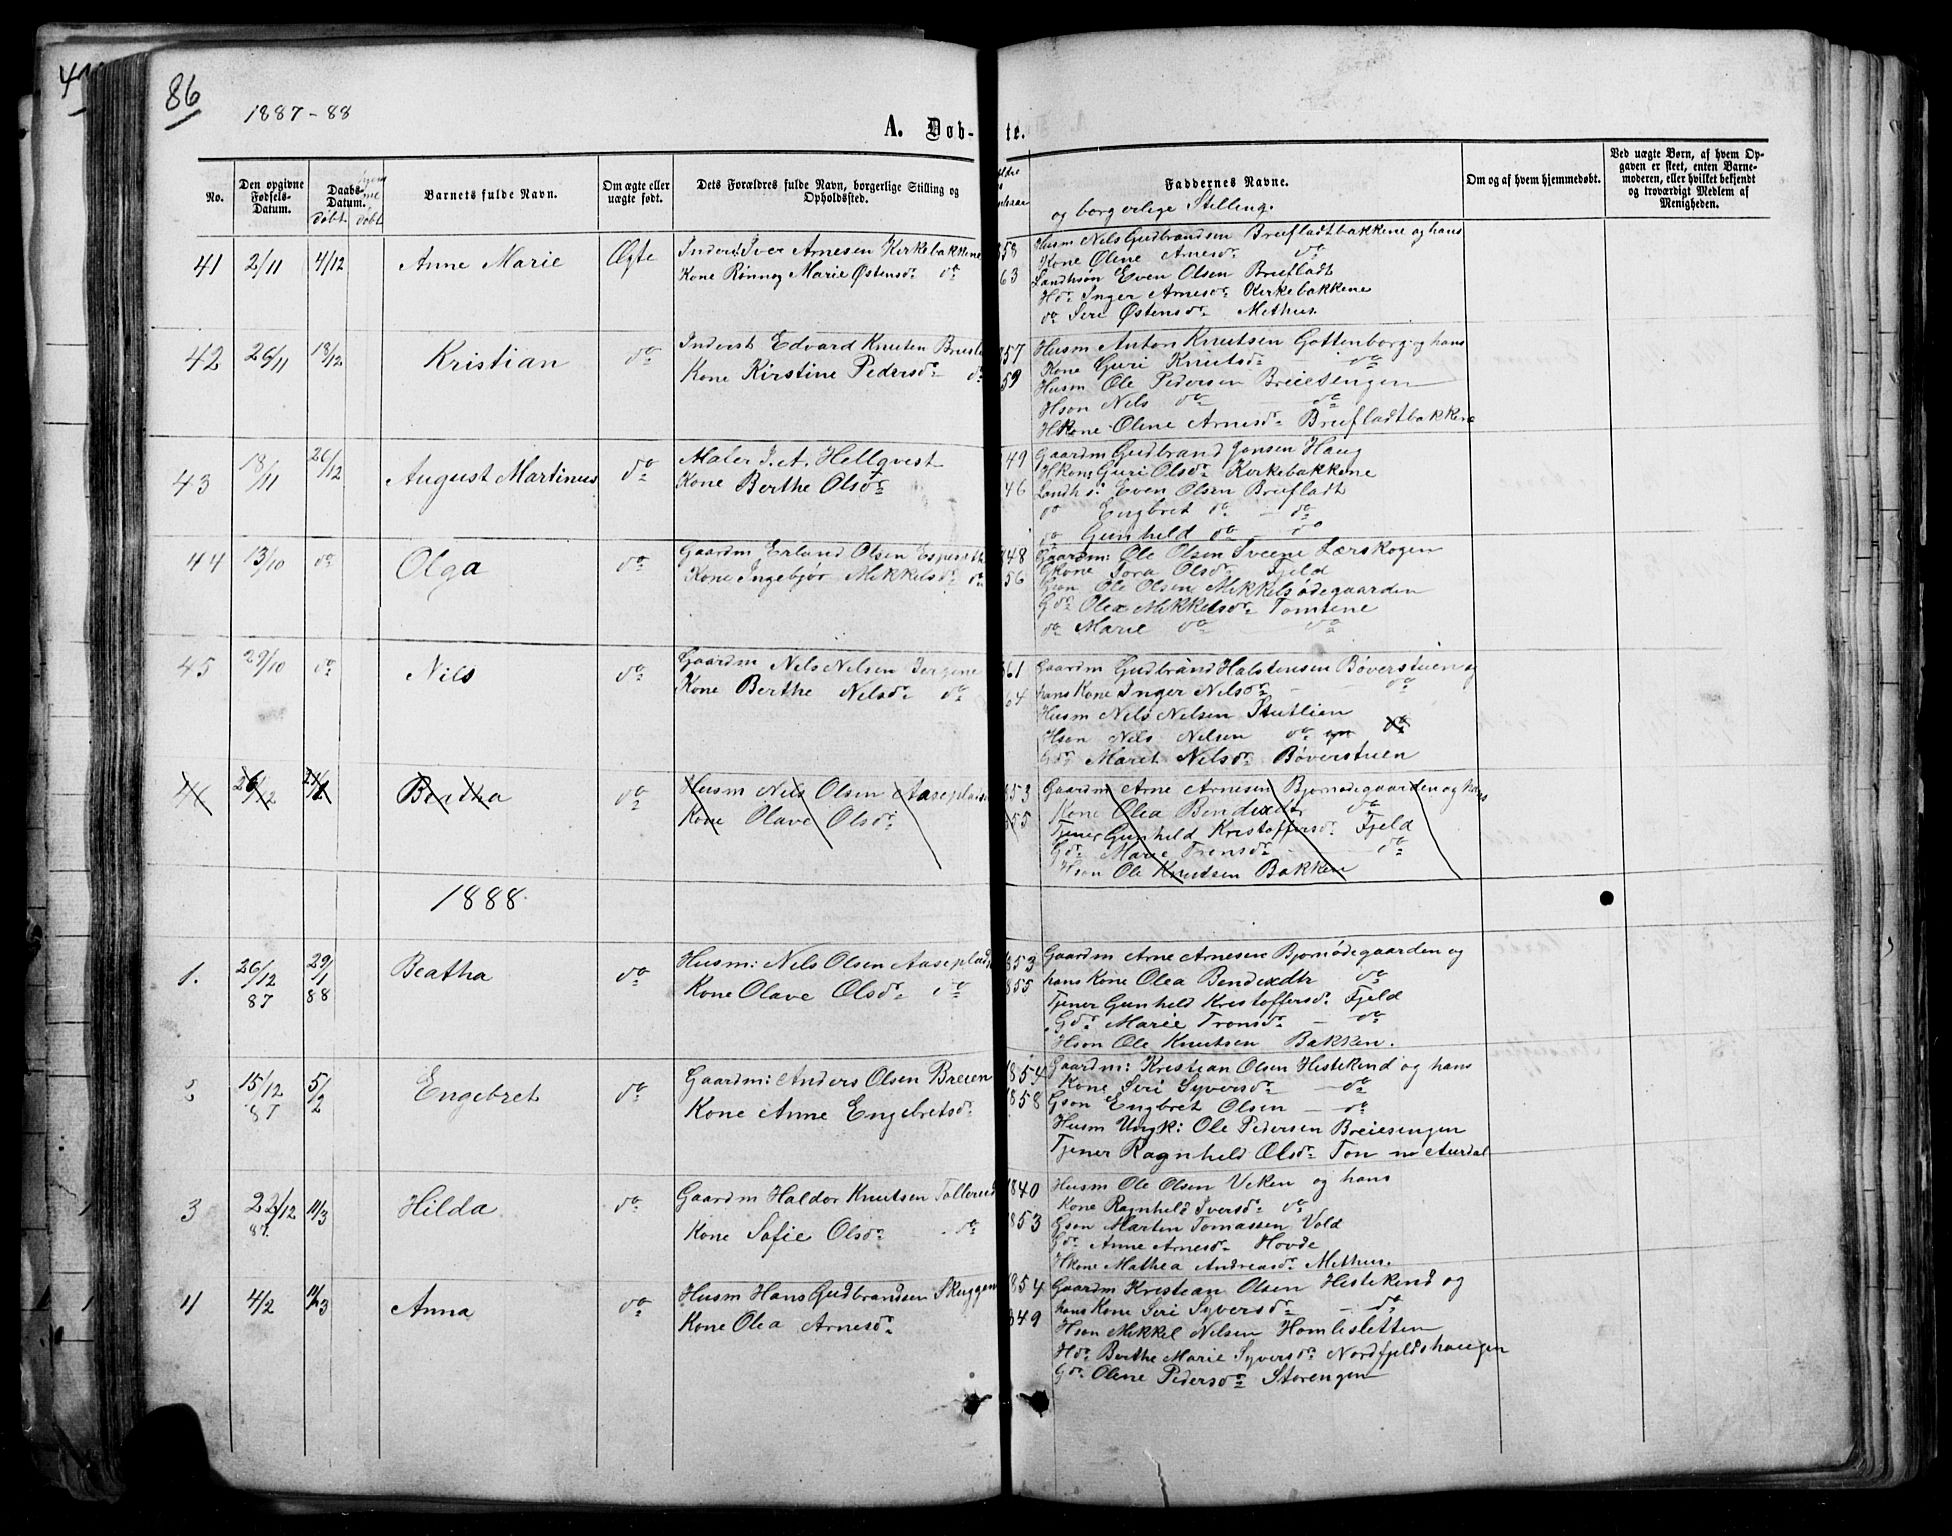 86
1887-88
A. Døb- te.
No.
Den opgivne Fødsels-Datum.
Daabs-Datum.
døbt
døbt
Barnets fulde Navn.
Om ægte eller uægte født.
Dets Forældres fulde Navn, borgerlige Stilling og Opholdssted.
Faddernes Navne.
og borgerlige Stilling.
Om og af hvem hjemmedøbt.
Ved uægte Børn, af hvem Opgaven er skeet, enten Barnemoderen, eller hvilket bekjendt og troværdigt Medlem af Menigheden.
41 2/11 4/12 Anne Marie Ægte
Inderst Iver Arnesen Kirkebakkene
Kone Rønnog Marie Østensdr do
858
63
Husm Nils Gudbrandsen Brufladtbakkene og hans
Kone Olene Arnesdr do
Landhsøn Even Olsen Brufladt
Hdr Inger Arnesdr Kirkebakkene
do Seri Østensdr Methus.
42 26/11 18/12 Kristian do
Inderst Edvard Knutsen
Kone Kirstine Pedersdr do
857
59
Husm Anton Knutsen Gottenborg og hans
Kone Guri Knutsdr do
Husm Ole Pedersen Breiesengen
Hson Nils do do
HKone Olene Arnesdr Brufladtbakkene
43 18/11 26/12 August Martinus do
Maler I. A. Hellqvist
Kone Berthe Olsdr
49
46
Gaardm Gudbrand Jonsen Haug
Hkone Guri Olsdr Kirkebakkene
Landh s: Even Olsen Brufladt
do Engbret do - do
do Gunhild do - do
44 13/10 do Olga do
Gaardm Erland Olsen
Kone Ingebjør Mikkelsdr do
848
56
Gaardm: Ole Olsen Sveene Lærskogen
GKone Tora Olsdr Fjeld
Gson Ole Olsen Mikkelsødegaarden
Gdr Olea Mikkelsdr Tomtene
do Marie do do
45 29/10 do Nils do
Gaardm Nils Nilsen
Kone Berthe Nilsdr do
861
64
Gaardm Gudbrand Halstensen Bøverstuen og
hans Kone Inger Nilsdr do
Husm Nils Nilsen Stutlien
Hson Nils Nilsen do do
Gdr Marit Nilsdr Bøverstuen
46 26/12 Beatha do
Husm Nils Olsen Aaseplads
Kone Olave Olsdr
853
855
Gaardm Arne Arnesen Bjørnødegaarden og hans
Kone Olea Bendixdtr do
Tjener Gunhild Kristoffersdr Fjeld
Gdr Marie Tronsdr do
Hson Ole Knutsen Bakken
1888
1. 26/12 87 29/1 88 Beatha do
Husm: Nils Olsen Aaseplads
Kone Olave Olsdr do
1853
1855
Gaardm Arne Arnesen Bjørnødegaarden og
hans Kone Olea Bendixdtr do
Tjener Gunhild Kristoffersdr Fjeld
Gdr Marie Tronsdr - do
Hson Ole Knutsen Bakken.
2 15/12 87 5/2 Engebret do
Gaardm: Anders Olsen Breien
Kone Anne Engebretsdr
1854
1858
Gaardm: Kristian Olsen Histekind og hans
Kone Seri Syversdr - do
Gson Engbret Olsen - do
Husm Ungk: Ole Pedersen Breiesengen
Tjener Ragnhild Olsdr Ton N. Aurdal
3 22/12 87. 11/3 Hilda do
Gaardm Haldor Knutsen Tollerud
Kone Sofie Olsdr do
1840
1853
Husm Ole Olsen Veken og hans
Kone Ragnhild Iversdr do
Gson Martin Tomassen Vold
Gdr Anne Arnesdr Hovde
Hkone Mathea Andreasdr Methus.
4 4/2 11/3 Anna do
Husm Hans Gudbrandsen Skuggen
Kone Olea Arnesdr
1854
849
Gaardm Kristian Olsen Histekind og
hans Kone Seri Syversdr do
Hson Mikkel Nilsen Homlesletten
Hdr Berthe Marie Syversdr Nordfjeldshaugen
Gdr Olene Pedersdr Storengen